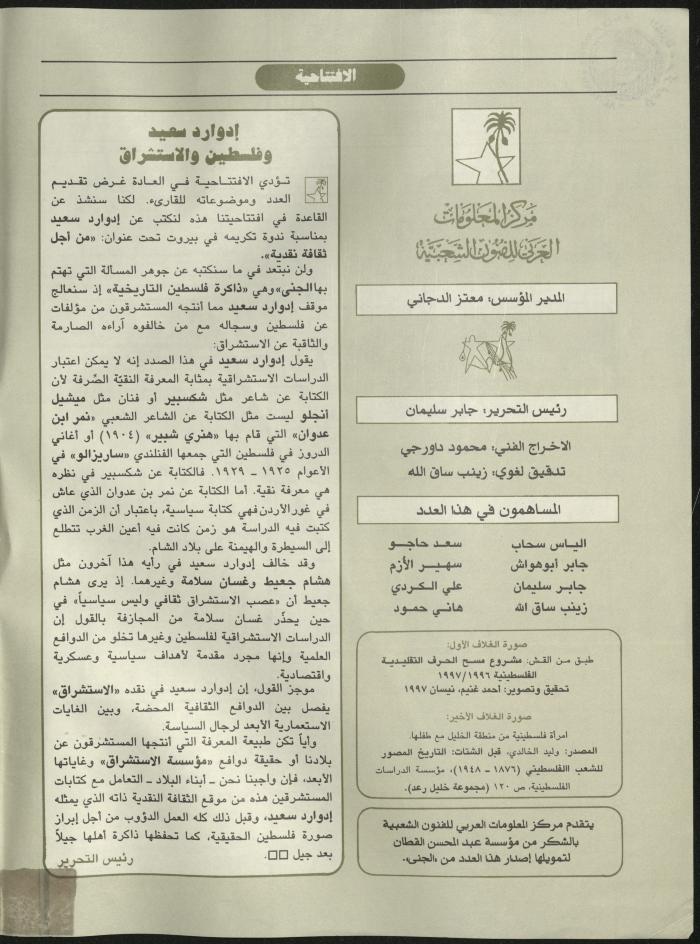 الافتتاحية
مركز المعلومات
العربي للفنون الشعبية
المدير المؤسس: معتز الدجاني
رئيس التحرير: جابر سليمان
الاخراج الفني: محمود داورجي
تدقيق لغوي: زينب ساق الله
المساهمون في هذا العدد
الياس سحاب
سعد حاجو
جابر أبوهواش
سهير الأزم
جابر سليمان
علي الكردي
زينب ساق الله
هاني حمود
صورة الغلاف الأول:
طبق من القش: مشروع مسح الحرف التقليدية
الفلسطينية ١٩٩٧/١٩٩٦
تحقيق وتصوير: أحمد غنيم، نيسان ١٩٩٧
صورة الغلاف الأخير:
امرأة فلسطينية من منطقة الخليل مع طفلها.
المصدر: وليد الخالدي. قبل الشتات: التاريخ المصور
للشعب االفلسطيني (١٨٧٦ – ١٩٤٨)، مؤسسة الدراسات
الفلسطينية، ص ١٢٠ (مجموعة خليل رعد).
يتقدم مركز المعلومات العربي للفنون الشعبية
بالشكر من مؤسسة عبد المحسن القطان
لتمويلها إصدار هذا العدد من «الجنى».
إدوارد سعيد
وفلسطين والاستشراق
تؤدي الافتتاحية في العادة غرض تقديم
العدد وموضوعاته للقارىء. لكنا سنشذ عن
القاعدة في افتتاحيتنا هذه لنكتب عن إدوارد سعيد
بمناسبة ندوة تكريمه في بيروت تحت عنوان: «من أجل
ثقافة نقدية».
ولن نبتعد في ما سنكتبه عن جوهر المسألة التي تهتم
بها الجنى» وهي «ذاكرة فلسطين التاريخية» إذ سنعالج
موقف إدوارد سعيد مما أنتجه المستشرقون من مؤلفات
عن فلسطين وسجاله مع من خالفوه آراءه الصارمة
والثاقبة عن الاستشراق:
يقول إدوارد سعيد في هذا الصدد إنه لا يمكن اعتبار
الدراسات الاستشراقية بمثابة المعرفة النقيّة الصِّرفة لأن
الكتابة عن شاعر مثل شكسبير أو فنان مثل ميشيل
أنجلو ليست مثل الكتابة عن الشاعر الشعبي «نمر ابن
عدوان» التي قام بها «هنري شبير» (١٩٠٤) أو أغاني
الدروز في فلسطين التي جمعها الفنلندي «ساريزالو» في
الأعوام ١٩٢٥ – ١٩٢٩. فالكتابة عن شكسبير في نظره
هي معرفة نقية. أما الكتابة عن نمر بن عدوان الذي عاش
في غور الأردن فهي كتابة سياسية، باعتبار أن الزمن الذي
كتبت فيه الدراسة هو زمن كانت فيه أعين الغرب تتطلع
إلى السيطرة والهيمنة على بلاد الشام.
وقد خالف إدوارد سعيد في رأيه هذا آخرون مثل
هشام جعيط وغسان سلامة وغيرهما. إذ يرى هشام
جعيط أن «عصب الاستشراق ثقافي وليس سياسياً» في
حين يحذّر غسان سلامة من المجازفة بالقول إن
الدراسات الاستشراقية لفلسطين وغيرها تخلو من الدوافع
العلمية وإنها مجرد مقدمة لأهداف سياسية وعسكرية
واقتصادية.
موجز القول، إن إدوارد سعيد في نقده «الاستشراق»
يفصل بين الدوافع الثقافية المحضة، وبين الغايات
الاستعمارية الأبعد لرجال السياسة.
وأياً تكن طبيعة المعرفة التي أنتجها المستشرقون عن
بلادنا أو حقيقة دوافع «مؤسسة الاستشراق» وغاياتها
الأبعد، فإن واجبنا نحن – أبناء البلاد – التعامل مع كتابات
المستشرقين هذه من موقع الثقافة النقدية ذاته الذي يمثله
إدوارد سعيد، وقبل ذلك كله العمل الدؤوب من أجل إبراز
صورة فلسطين الحقيقية، كما تحفظها ذاكرة أهلها جيلاً
بعد جيل □□.
رئيس التحرير